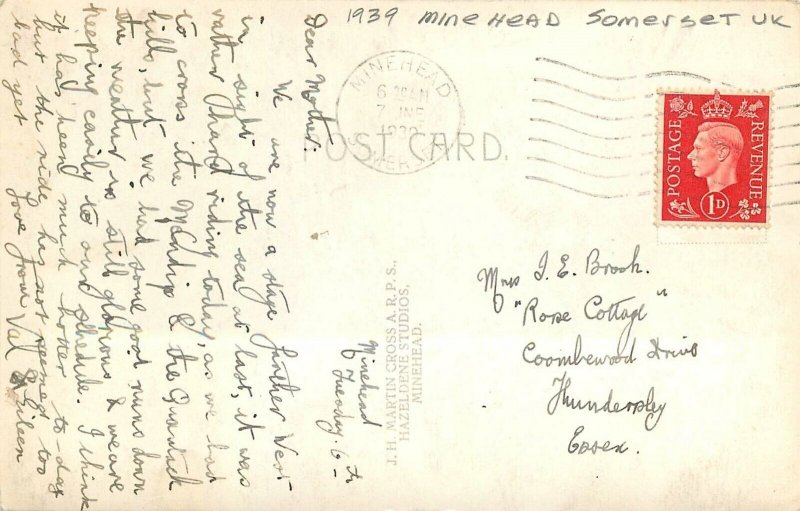 1939 MINEHEAD SOMERSET UK
MINEHEAD
1939
POST CARD.
POSTAGE
REVENUE
1D
Minehead
Tuesday. 6th
Dear Mother.
We are now a stage further West
in sight of the sea at last, it was
rather hard riding today, as we had
to cross the Mendip & the Quantock
hills, but we had some good runs down
the weather is still glorious & we are
keeping easily to our schedule. I think
it has been much hotter to-day
but the ride has not seemed too
bad yet
Love from Vic
& Eileen
J.H. MARTIN CROSS A.R.P.S.,
HAZELDENE STUDIOS,
MINEHEAD.
Mrs J. E. Brook.
"Rose Cottage"
Coombewood Drive
Thundersley
Essex.